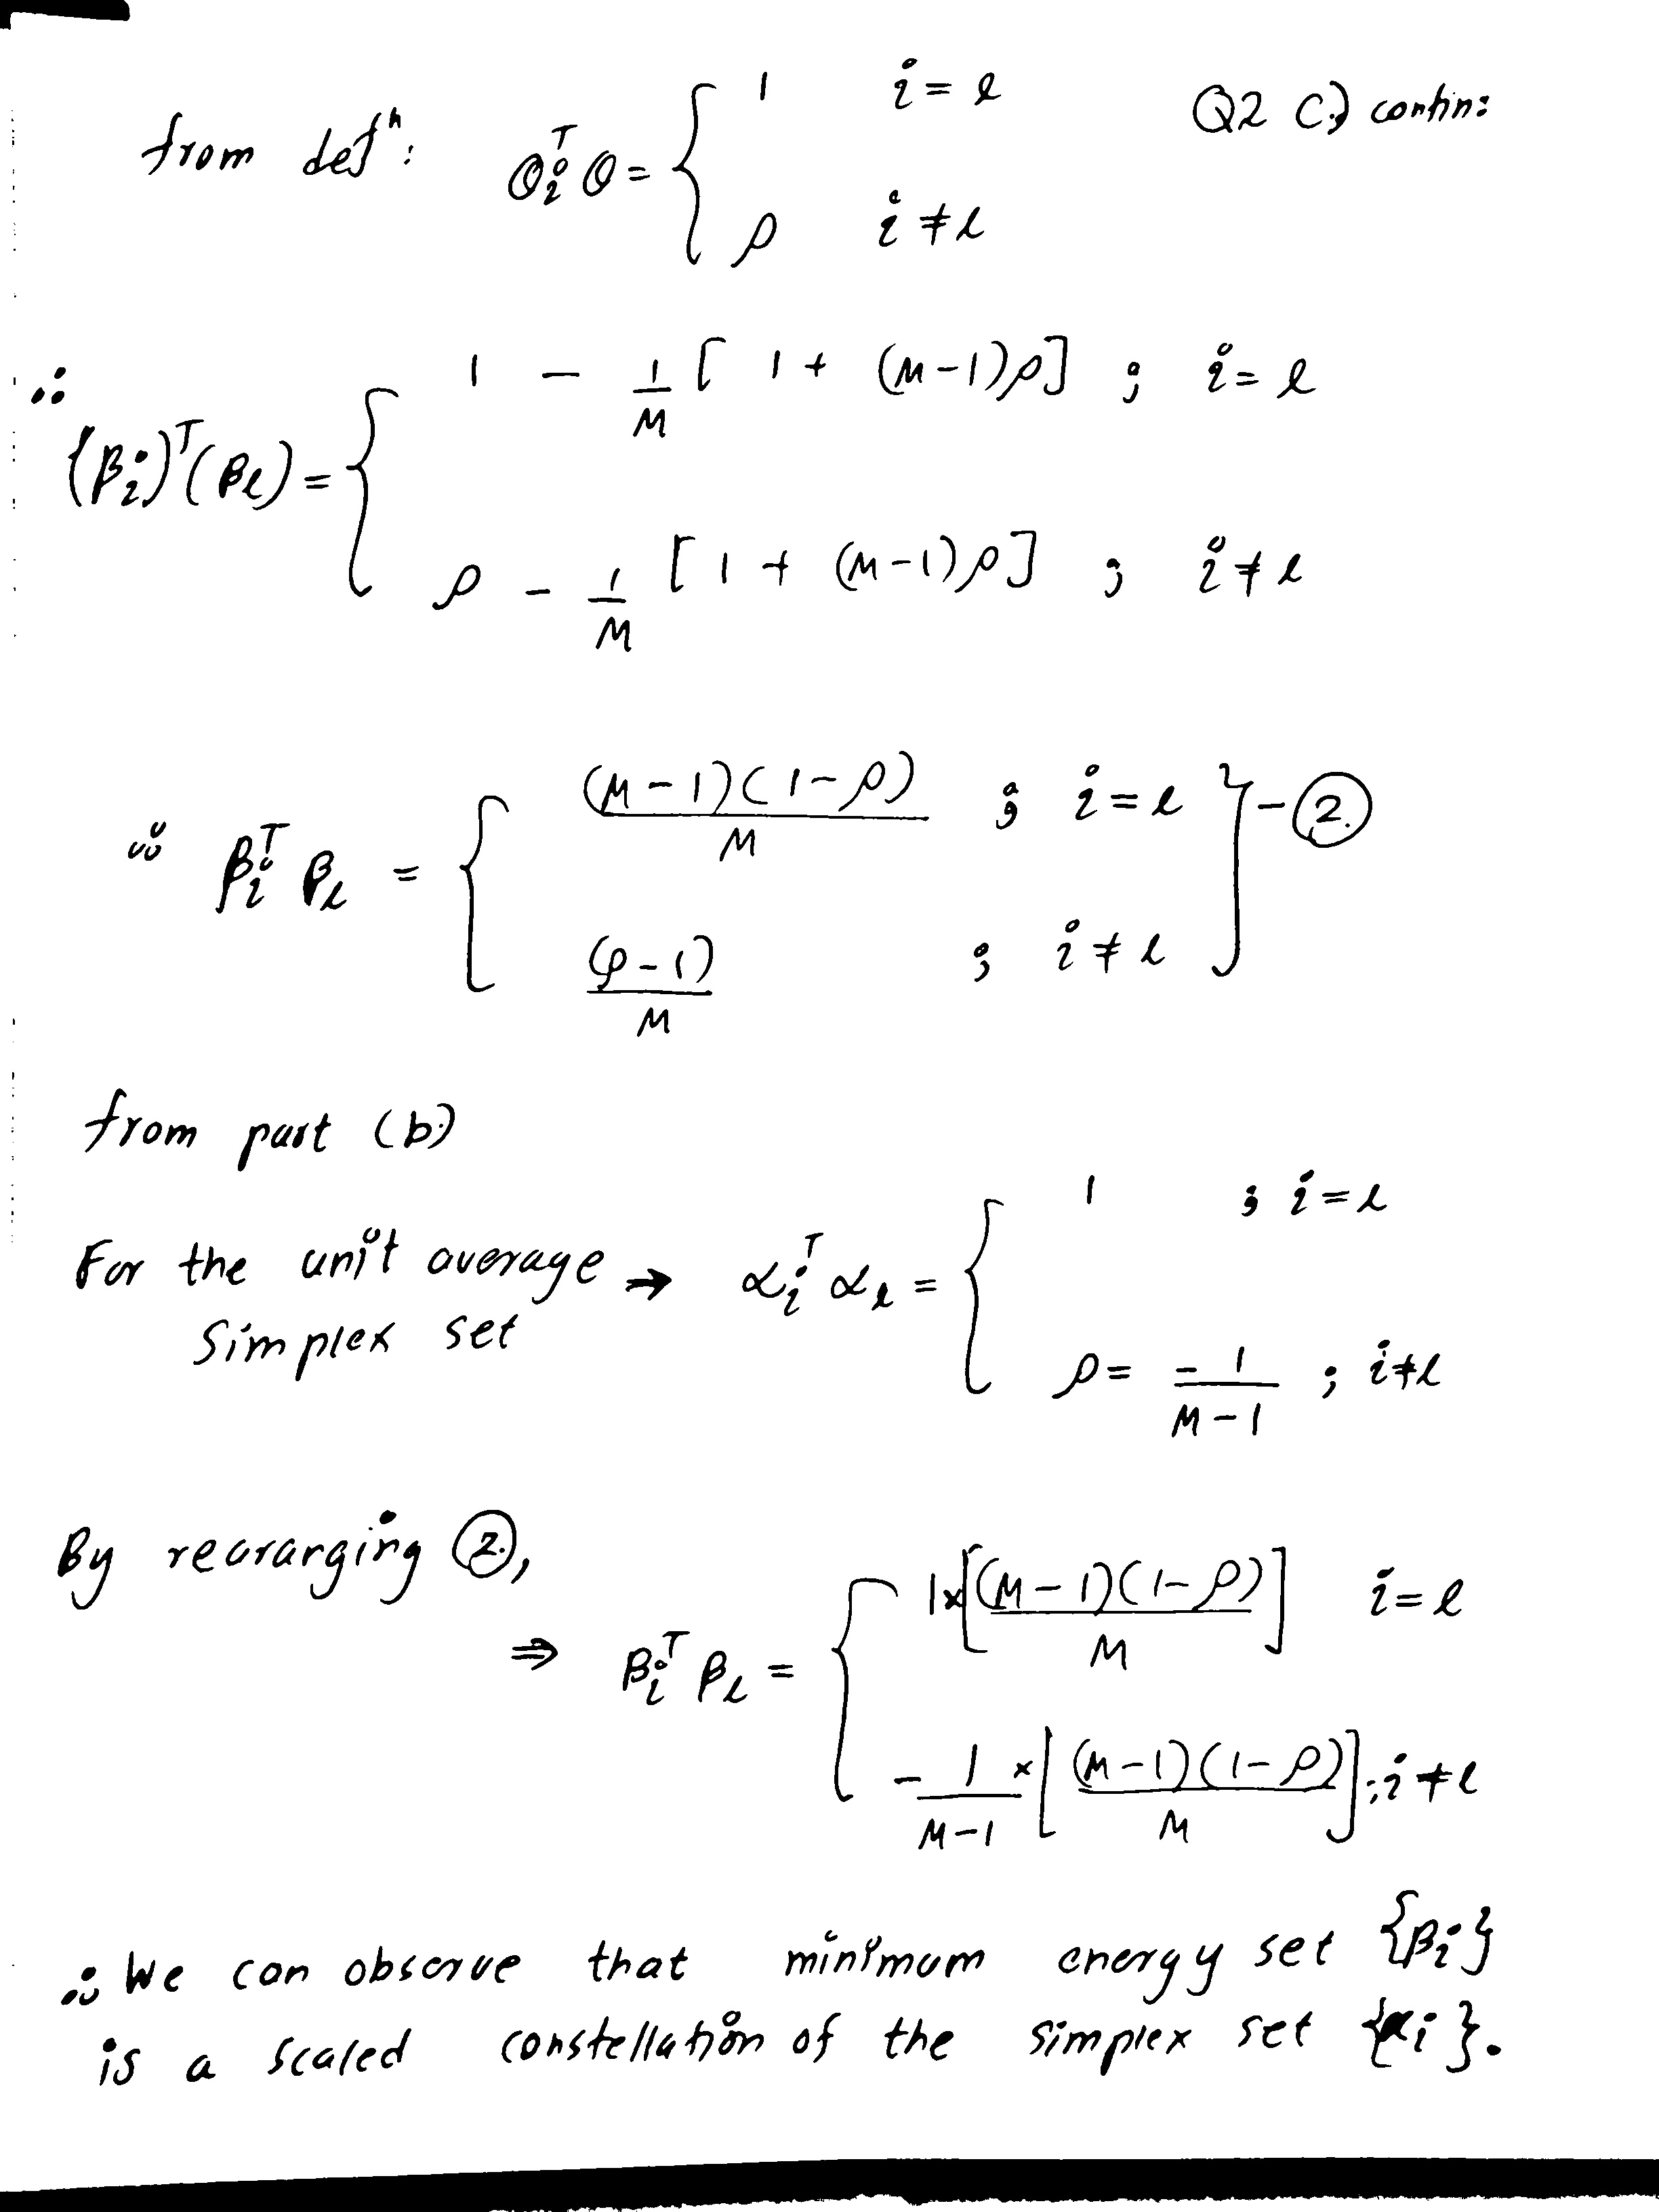 Q2 C.) contin:
from defⁿ: θᵢᵀ θ = { 1 i = l
ρ i ≠ l
∴ (βᵢ)ᵀ(βₗ) = { 1 - 1/M [ 1 + (M-1)ρ] ; i = l
ρ - 1/M [ 1 + (M-1)ρ] ; i ≠ l
∴ βᵢᵀ βₗ = { (M-1)(1-ρ)/M ; i = l } - ②
(ρ-1)/M ; i ≠ l
from part (b.)
For the unit average simplex set → αᵢᵀ αₗ = { 1 ; i = l
ρ = -1/(M-1) ; i ≠ l
By reararging ②,
⇒ βᵢᵀ βₗ = { 1×[(M-1)(1-ρ)/M] i = l
-1/(M-1) × [(M-1)(1-ρ)/M] ; i ≠ l
∴ We can observe that minimum energy set {βᵢ}
is a scaled constellation of the simplex set {αᵢ}.